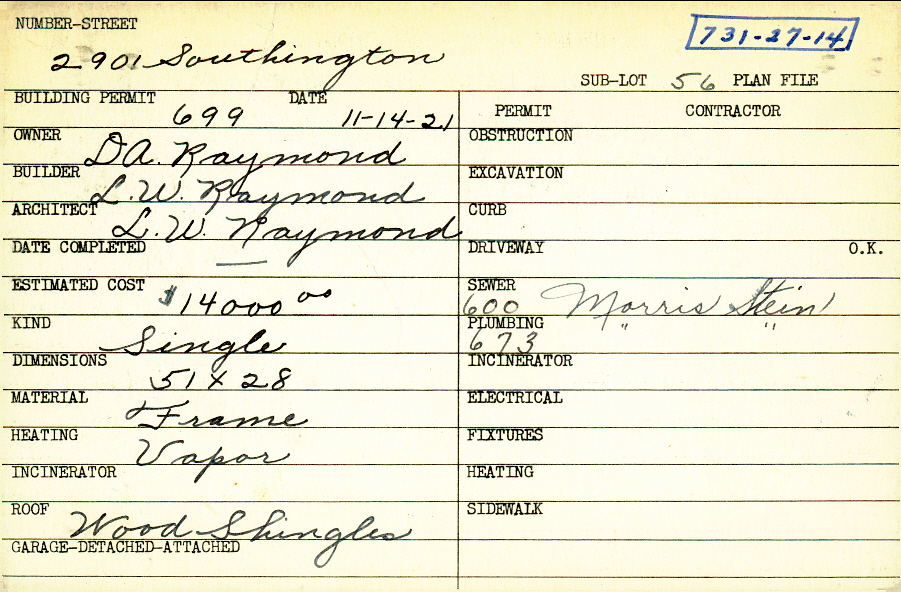 NUMBER-STREET
731-27-14
2901 Southington
SUB-LOT 56 PLAN FILE
BUILDING PERMIT 699 DATE 11-14-21
PERMIT CONTRACTOR
OWNER D.A. Raymond
OBSTRUCTION
BUILDER L.W. Raymond
EXCAVATION
ARCHITECT L.W. Raymond
CURB
DATE COMPLETED —
DRIVEWAY O.K.
ESTIMATED COST $14000 00
SEWER 600 Morris Stein
KIND Single
PLUMBING 673 " "
DIMENSIONS 51 x 28
INCINERATOR
MATERIAL Frame
ELECTRICAL
HEATING Vapor
FIXTURES
INCINERATOR
HEATING
ROOF Wood Shingles
SIDEWALK
GARAGE-DETACHED-ATTACHED